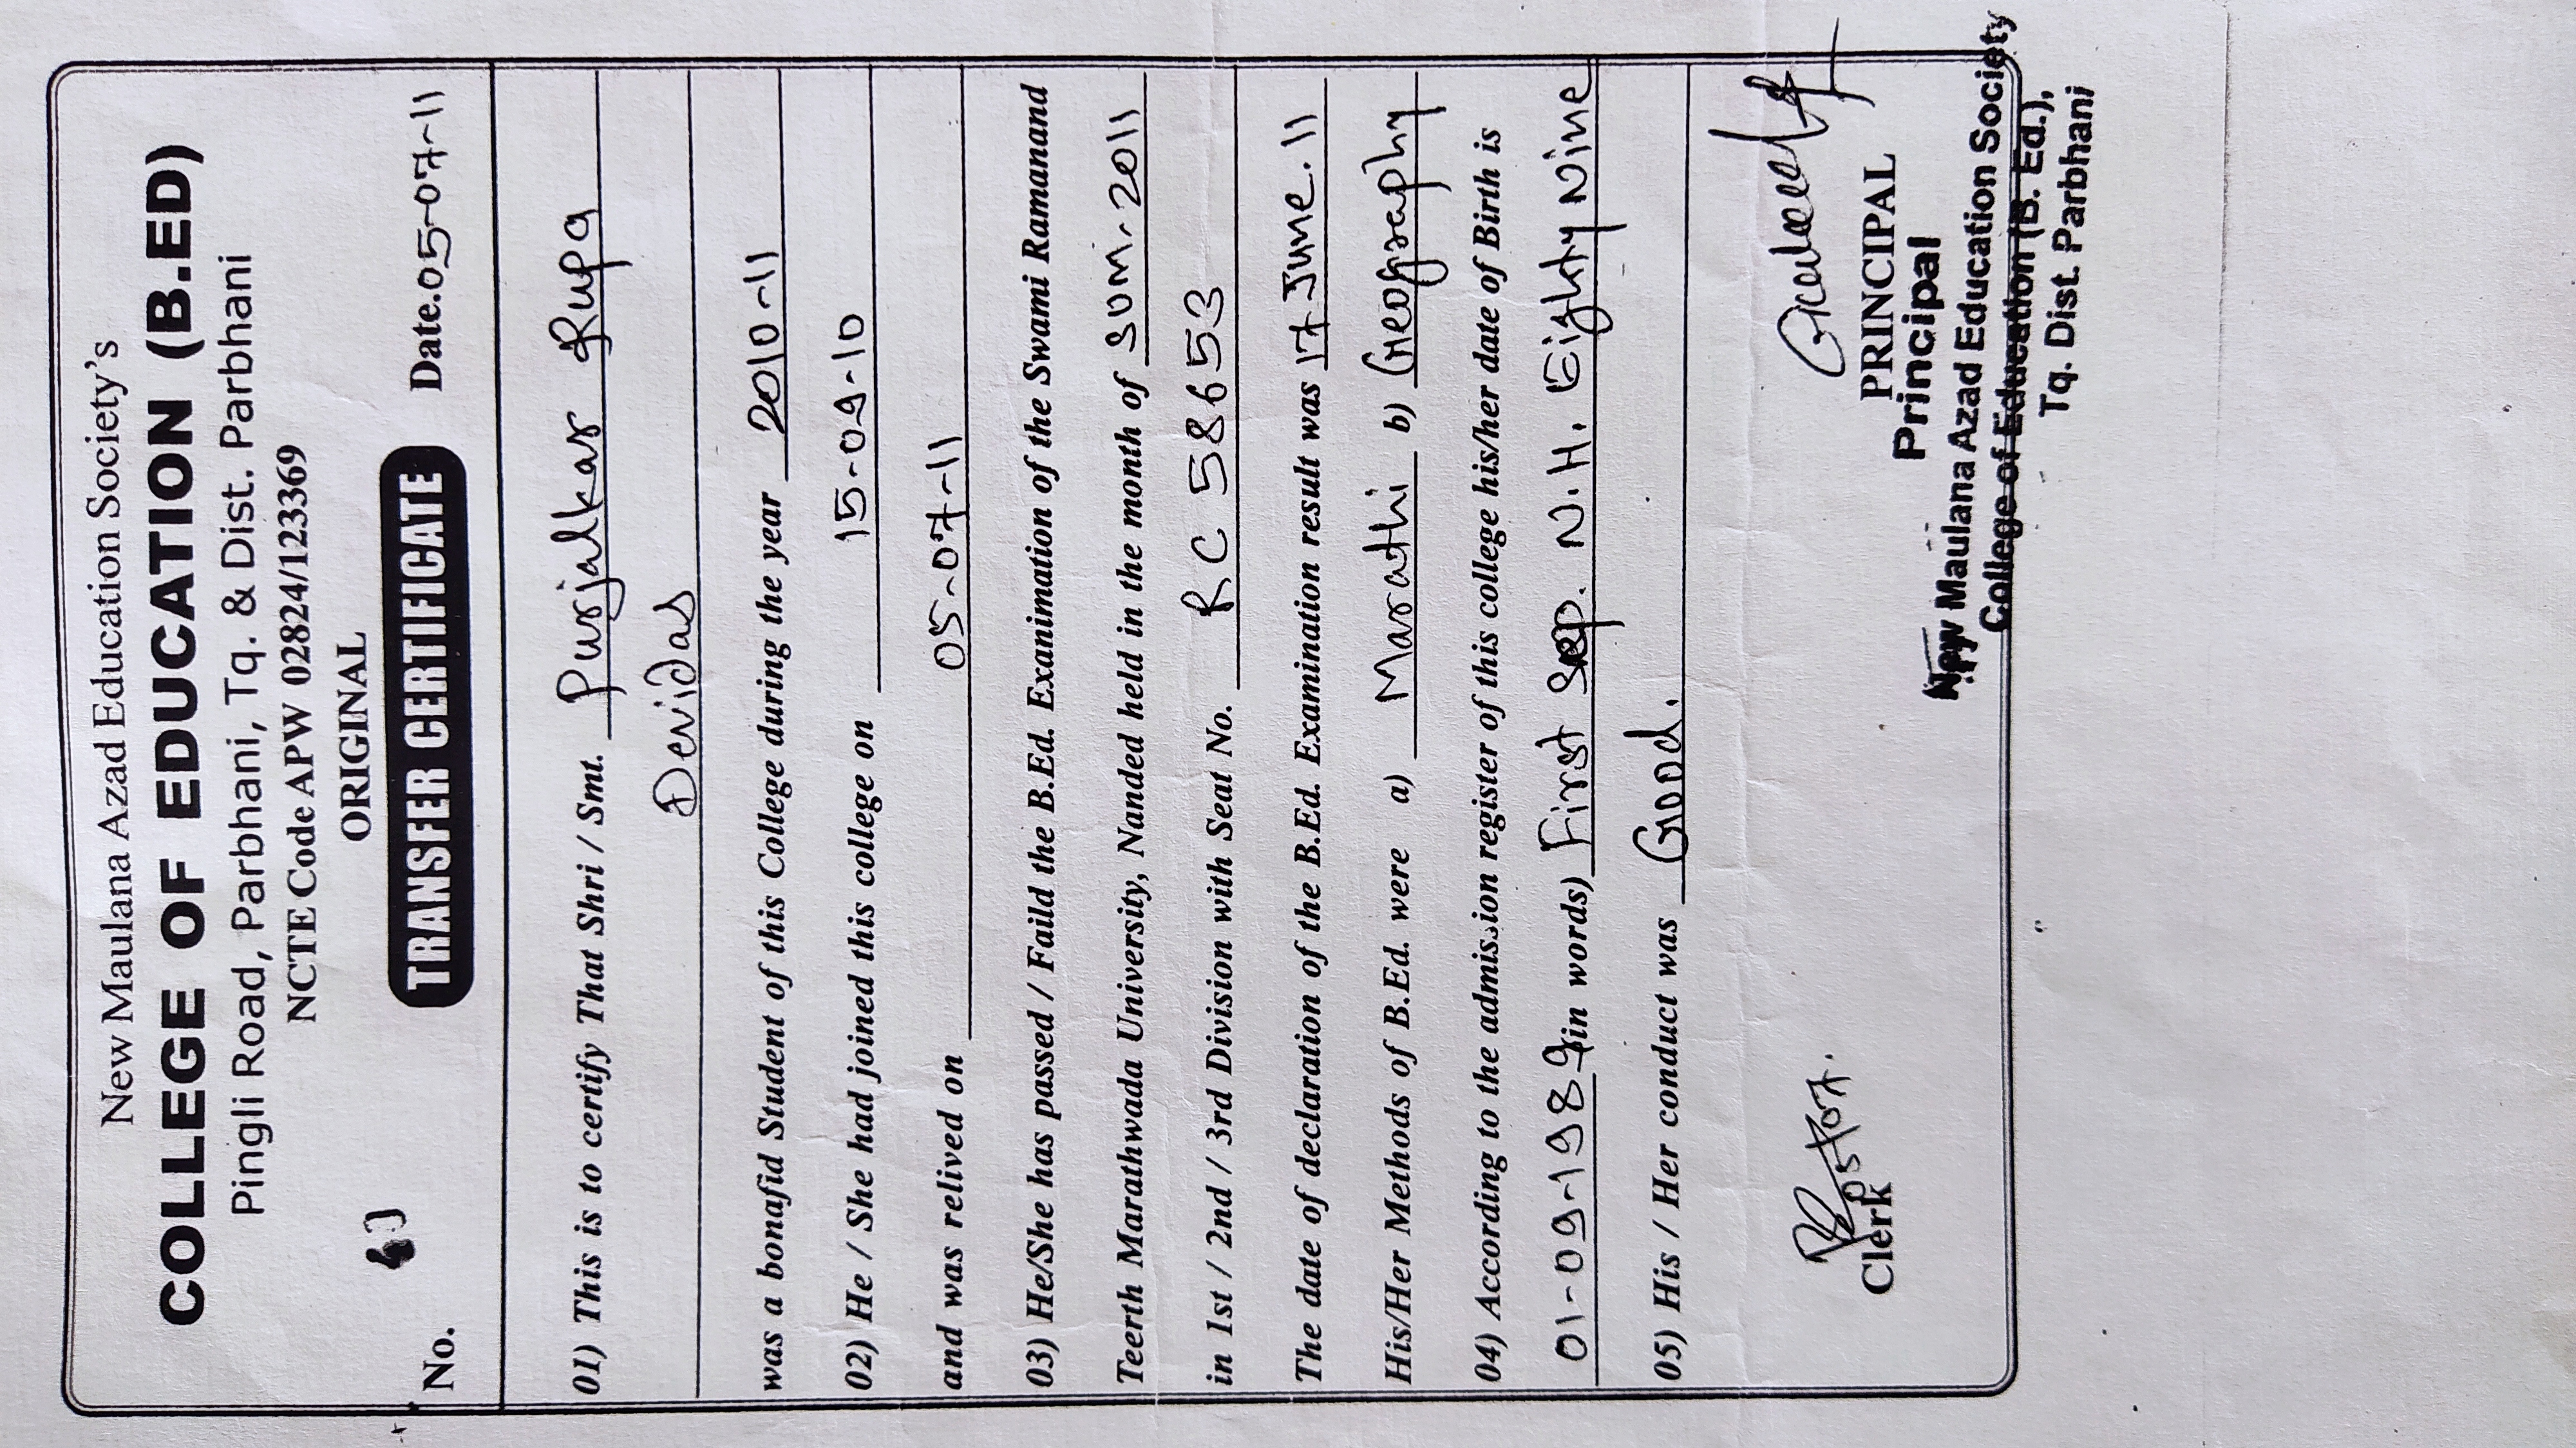 New Maulana Azad Education Society's
COLLEGE OF EDUCATION (B.ED)
Pingli Road, Parbhani, Tq. & Dist. Parbhani
NCTE Code APW 02824/123369
ORIGINAL
No. TRANSFER CERTIFICATE Date.05-07-11
01) This is to certify That Shri / Smt. Purjalkar Rupa
Devidas
was a bonafid Student of this College during the year 2010-11
02) He / She had joined this college on 15-09-10
and was relived on 05-07-11
03) He/She has passed / Faild the B.Ed. Examination of the Swami Ramanand
Teerth Marathwada University, Nanded held in the month of SUM-2011
in 1st / 2nd / 3rd Division with Seat No. RC 58653
The date of declaration of the B.Ed. Examination result was 17 June.11
His/Her Methods of B.Ed. were a) Marathi b) Geography
04) According to the admission register of this college his/her date of Birth is
01-09-1989 in words) First Sep. N.H. Eighty Nine
05) His / Her conduct was Good.
05/07.
Clerk PRINCIPAL
Principal
New Maulana Azad Education Society
College of Education (B. Ed.),
Tq. Dist. Parbhani